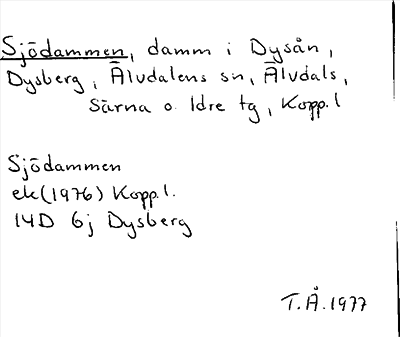 Sjödammen, damm i Dysån,
Dysberg, Älvdalens sn, Älvdals,
Särna o. Idre tg, Kopp.l
Sjödammen
ek(1976) Kopp.l.
14D 6j Dysberg
T.Å.1977